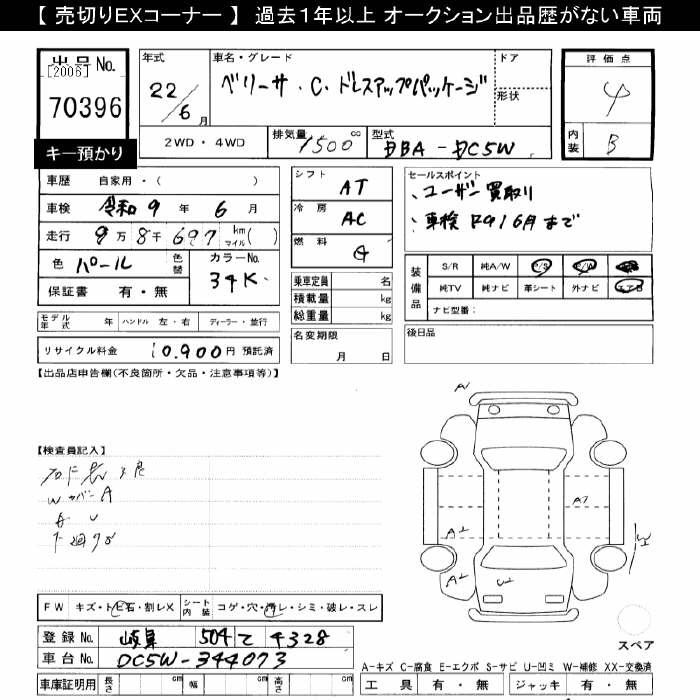 【 売切りEXコーナー 】 過去1年以上 オークション出品歴がない車両
出品No.
[2006]
70396
キー預かり
年式 22/6月
車名・グレード ベリーサ・C・ドレスアップパッケージ
ドア
形状
2WD・4WD
排気量 1500 cc
型式 DBA-DC5W
評価点 4
内装 B
車歴 自家用・( )
車検 令和9年6月
走行 9万8千697 km マイル( )
色 パール 色替 カラーNo. 34K
保証書 有・無
シフト AT
冷房 AC
燃料 G
乗車定員 名
積載量 kg
総重量 kg
セールスポイント
、ユーザー買取り
、車検R9/6月まで
装備品 S/R 純A/W P/S P/W
純TV 純ナビ 革シート 外ナビ エアB
ナビ型番:
モデル年式 年 ハンドル 左・右 ディーラー・並行
名変期限 月 日
後日品
リサイクル料金 10,900円 預託済
【出品店申告欄(不良箇所・欠品・注意事項等)】
【検査員記入】
Wカバー A
A
A7
A1
A1
FW キズ・トビ石・割レX シート内装 コゲ・穴・汚レ・シミ・破レ・スレ
登録No. 岐阜 504 て 4328
車台No. DC5W-344073
車庫証明用 長さ cm 幅 cm 高さ cm
スペア
A-キズ C-腐食 E-エクボ S-サビ U-凹ミ W-補修 XX-交換済
工具 有・無 ジャッキ 有・無